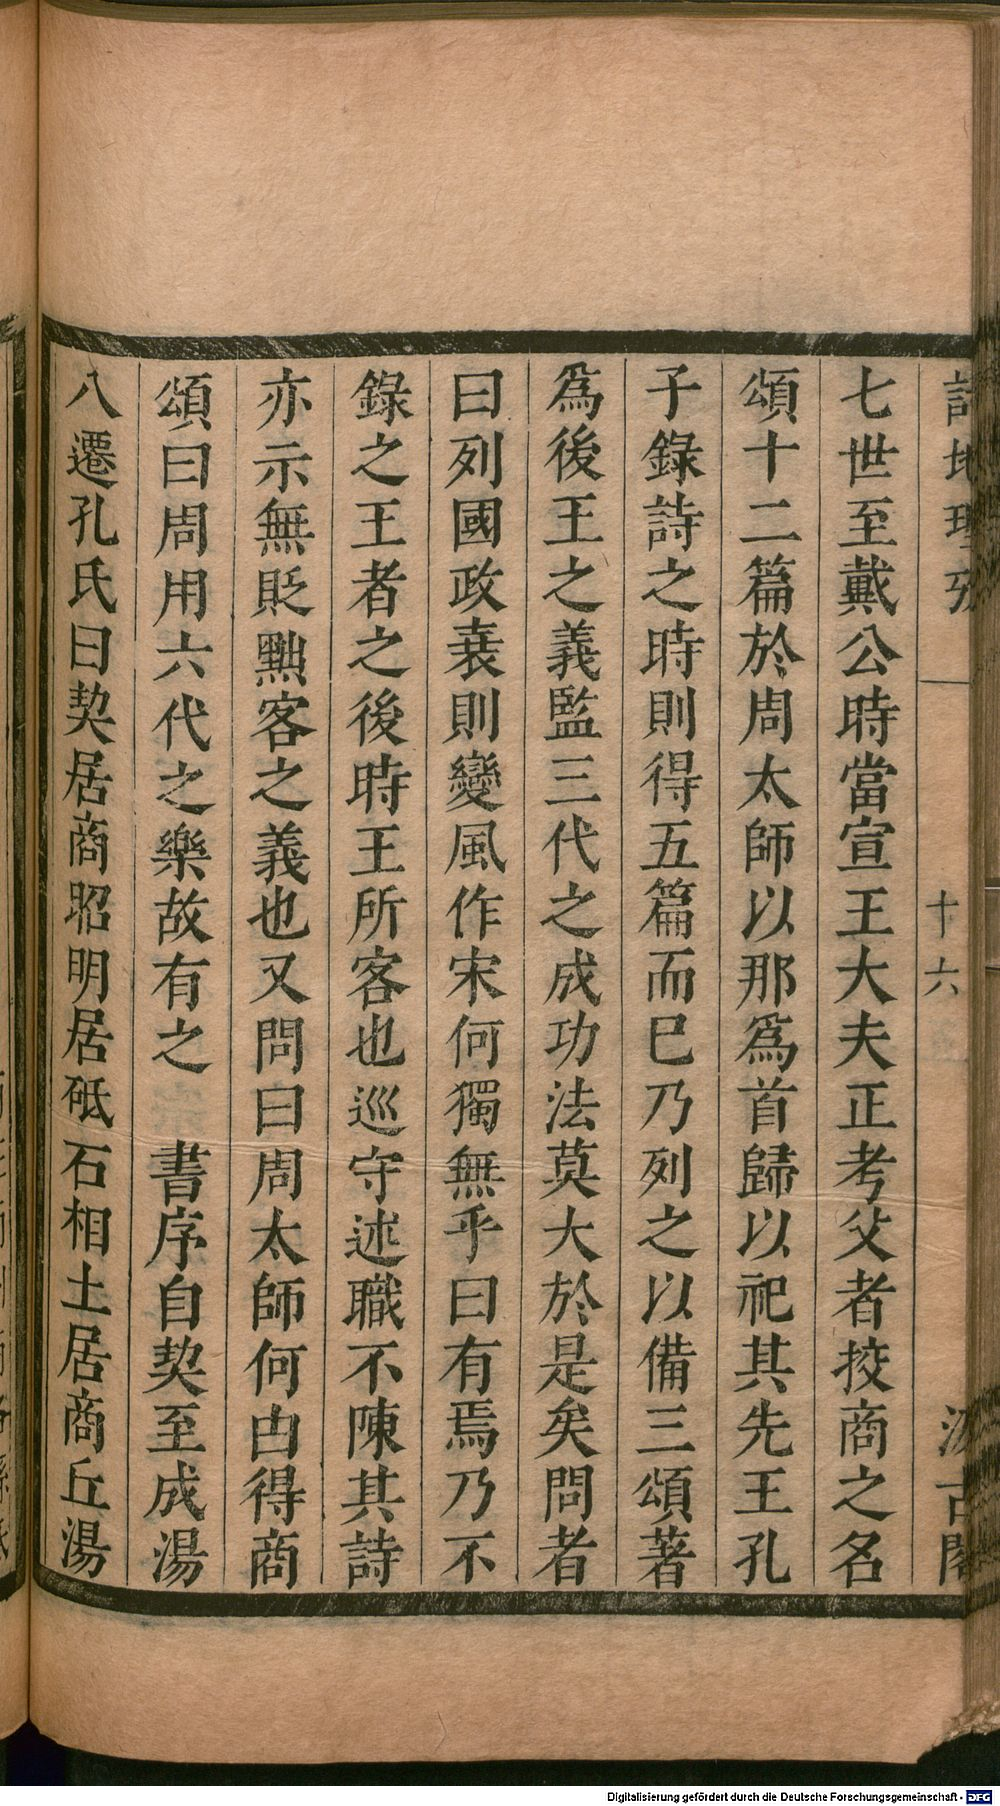 詩地理攷
十六
汲古閣
七世至戴公時當宣王大夫正考父者挍商之名
頌十二篇於周太師以那爲首歸以祀其先王孔
子錄詩之時則得五篇而已乃列之以備三頌著
爲後王之義監三代之成功法莫大於是矣問者
曰列國政衰則變風作宋何獨無乎曰有焉乃不
錄之王者之後時王所客也巡守述職不陳其詩
亦示無貶黜客之義也又問曰周太師何由得商
頌曰周用六代之樂故有之 書序自契至成湯
八遷孔氏曰契居商昭明居砥石相土居商丘湯
Digitalisierung gefördert durch die Deutsche Forschungsgemeinschaft - DFG